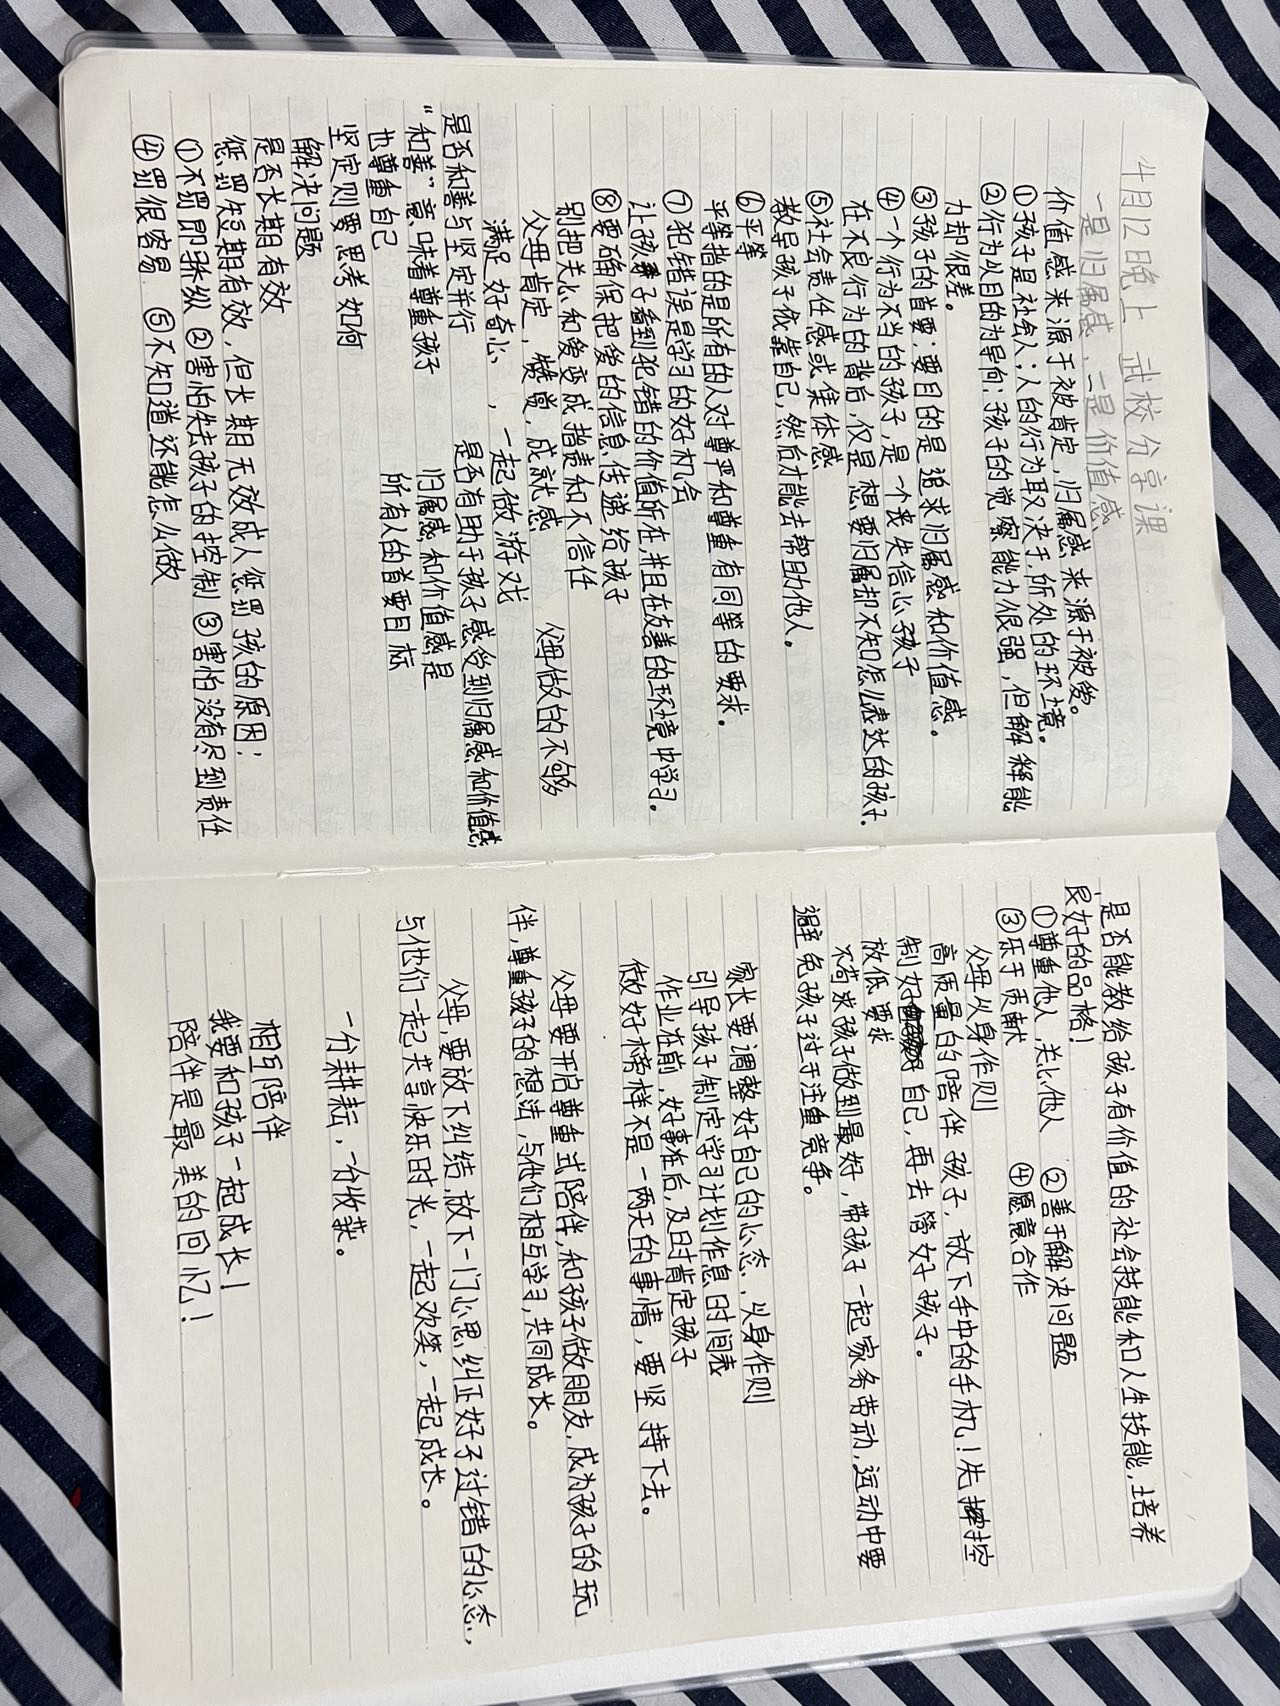 4月12日晚上 武校分享课
一是归属感、二是价值感
价值感来源于被肯定，归属感来源于被爱。
①孩子是社会人：人的行为取决于，所处的环境。
②行为以目的为导向：孩子的觉察能力很强，但解释能
力却很差。
③孩子的首要：要目的是追求归属感和价值感。
④一个行为不当的孩子，是一个丧失信心孩子
在不良行为的背后，仅是想要归属却不知怎么表达的孩子.
⑤社会责任感或集体感
教导孩子依靠自己，然后才能去帮助他人。
⑥平等
平等指的是所有的人对尊严和尊重有同等的要求。
⑦犯错误是学习的好机会
让孩子看到犯错的价值所在，并且在友善的环境中学习。
⑧要确保把爱的信息传递给孩子
别把关心和爱变成指责和不信任
父母肯定，赞赏，成就感 父母做的不够
满足好奇心，一起做游戏
是否和善与坚定并行 是否有助于孩子感受到归属感和价值感，
“和善”意味着尊重孩子 归属感和价值感是
也尊重自己 所有人的首要目标
坚定则要思考如何
解决问题
是否长期有效
惩罚短期有效，但长期无效成人惩罚孩的原因：
①不罚即骄纵 ②害怕失去孩子的控制 ③害怕没有尽到责任
④罚很容易 ⑤不知道还能怎么做
是否能教给孩子有价值的社会技能和人生技能，培养
良好的品格！
①尊重他人，关心他人 ②善于解决问题
③乐于贡献 ④愿意合作
父母以身作则
高质量的陪伴孩子，放下手中的手机！先控
制好自己，再去管好孩子。
放低要求
不苛求孩子做到最好，带孩子一起家务带动，运动中要
避免孩子过于注重竞争。
家长要调整好自己的心态，以身作则
引导孩子制定学习计划作息时间表
作业在前，好事在后，及时肯定孩子
做好榜样不是一两天的事情，要坚持下去。
父母要开启尊重式陪伴，和孩子做朋友，成为孩子的玩
伴，尊重孩子的想法，与他们相互学习，共同成长。
父母，要放下纠结，放下一门心思纠正好子过错的心态，
与他们一起共享快乐时光，一起欢笑，一起成长。
一分耕耘，一分收获。
相互陪伴
我要和孩子一起成长！
陪伴是最美的回忆！